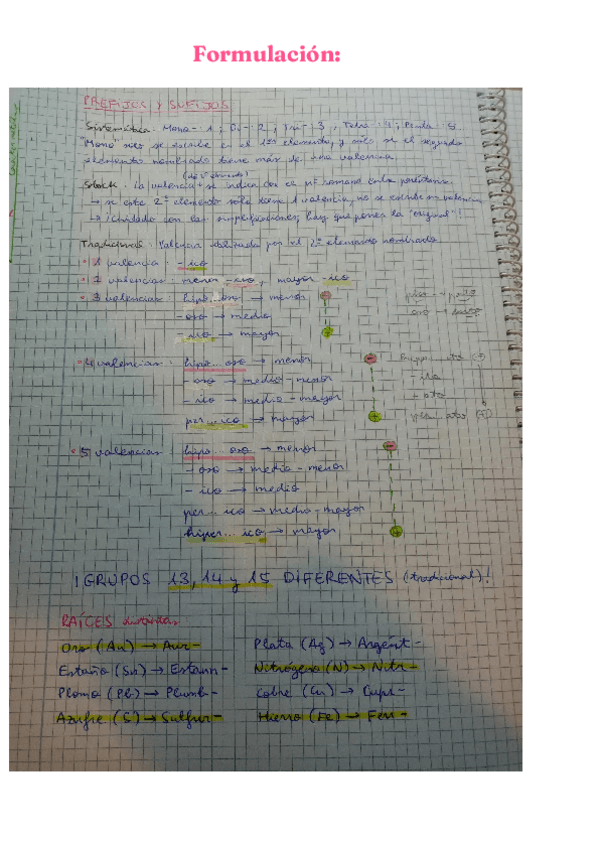 Formulación:
PREFIJOS Y SUFIJOS
Sistemática: Mono- 1; Di- 2; Tri- 3; Tetra- 4; Penta- 5
"Mono" solo se escribe en el elemento, y sólo si el segundo
elemento nombrado tiene más de una valencia.
Stock: la valencia se indica con el nº romano entre paréntesis.
→ si este 2º elemento sólo tiene 1 valencia, no se escribe su valencia
→ ¡Cuidado con las simplificaciones, hay que poner la "original"!
Tradicional: Valencia del 2º elemento nombrado
• 1 valencia: -ico
• 2 valencias: menor -oso, mayor -ico
• 3 valencias: hipo...oso → menor
-oso → medio
-ico → mayor
• 4 valencias: hipo...oso → menor
-oso → medio-menor
-ico → medio-mayor
per...ico → mayor
• 5 valencias: hipo...oso → menor
-oso → medio-menor
-ico → medio
per...ico → medio-mayor
hiper...ico → mayor
¡GRUPOS 13, 14 y 15 DIFERENTES (tradicional)!
RAÍCES distintas
Oro (Au) → Aur-
Plata (Ag) → Argent-
Estaño (Sn) → Estann-
Nitrógeno (N) → Nitr-
Plomo (Pb) → Plumb-
Cobre (Cu) → Cupr-
Azufre (S) → Sulfur-
Hierro (Fe) → Ferr-